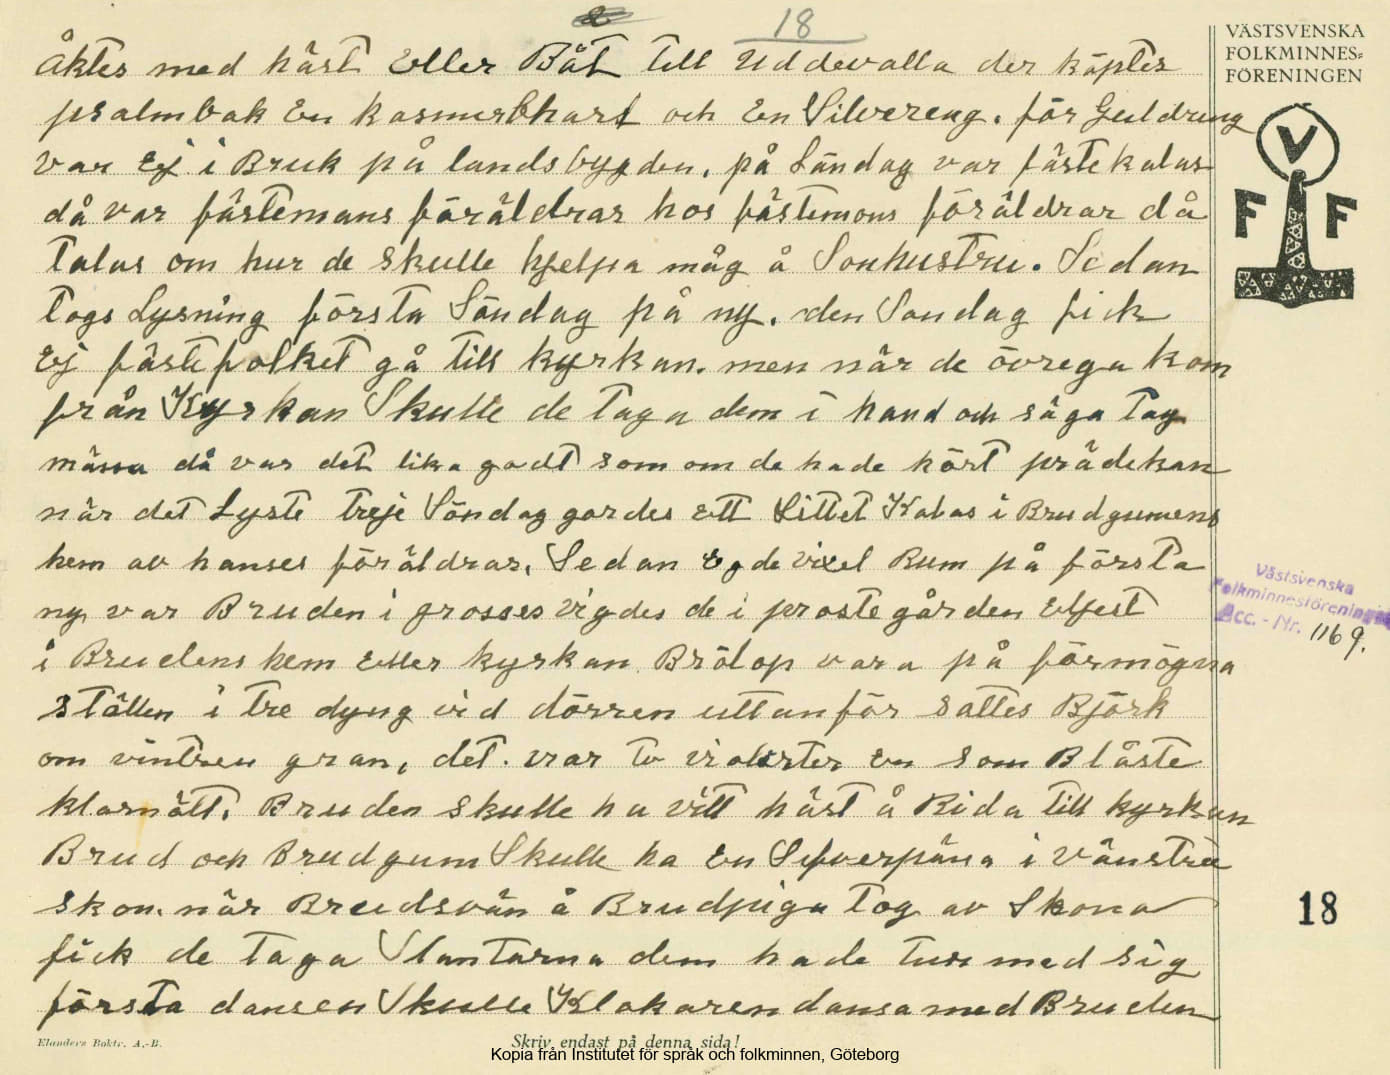 18
VÄSTSVENSKA
FOLKMINNES=
FÖRENINGEN
Åktes med häst Eller Båt till Uddevalla der köptes
psalmbok En kasmerbharl och En Silvereng. för Guldreng
var Ej i Bruk på landsbygden. på Söndag var fästekalas
då var fästemans föräldrar hos fästemons föräldrar då
Talas om hur de skulle hjelpa måg å Sonhustru. Sedan
Togs Lysning första Söndag på ny. den Söndag fick
Ej fästefolket gå till kyrkan. men när de övrega kom
från Kyrkan Skulle de Taga dem i hand och säga Tag
mässa då var det lika godt som om de hade hört prädekan
när det Lyste treje Söndag gordes ett Littet Kalas i Brudgumens
hem av hanses föräldrar. Sedan Egde vixel Rum på första
ny var Bruden i grosses vigdes de i prostegården Elgest
i Brudens hem eller kyrkan. Brölop vara på förmögna
ställen i tre dyng vid dörren uttanför sattes Björk
om vintren gran, det var to violester En som Blåste
klarnätt. Bruden skulle ha vitt häst å Rida till kyrkan
Brud och Brudgum Skulle ha En Selverpäng i vänstra
skon. när Breudsvän å Brudpiga Tog av Skona
fick de taga Slantarna dem hade tur med sig
första dansen Skulle Klokaren dansa med Bruden
V
F F
Västsvenska
Folkminnesföreningen
Acc.-Nr. 1169.
18
Elanders Boktr. A.-B.
Skriv endast på denna sida!
Kopia från Institutet för språk och folkminnen, Göteborg